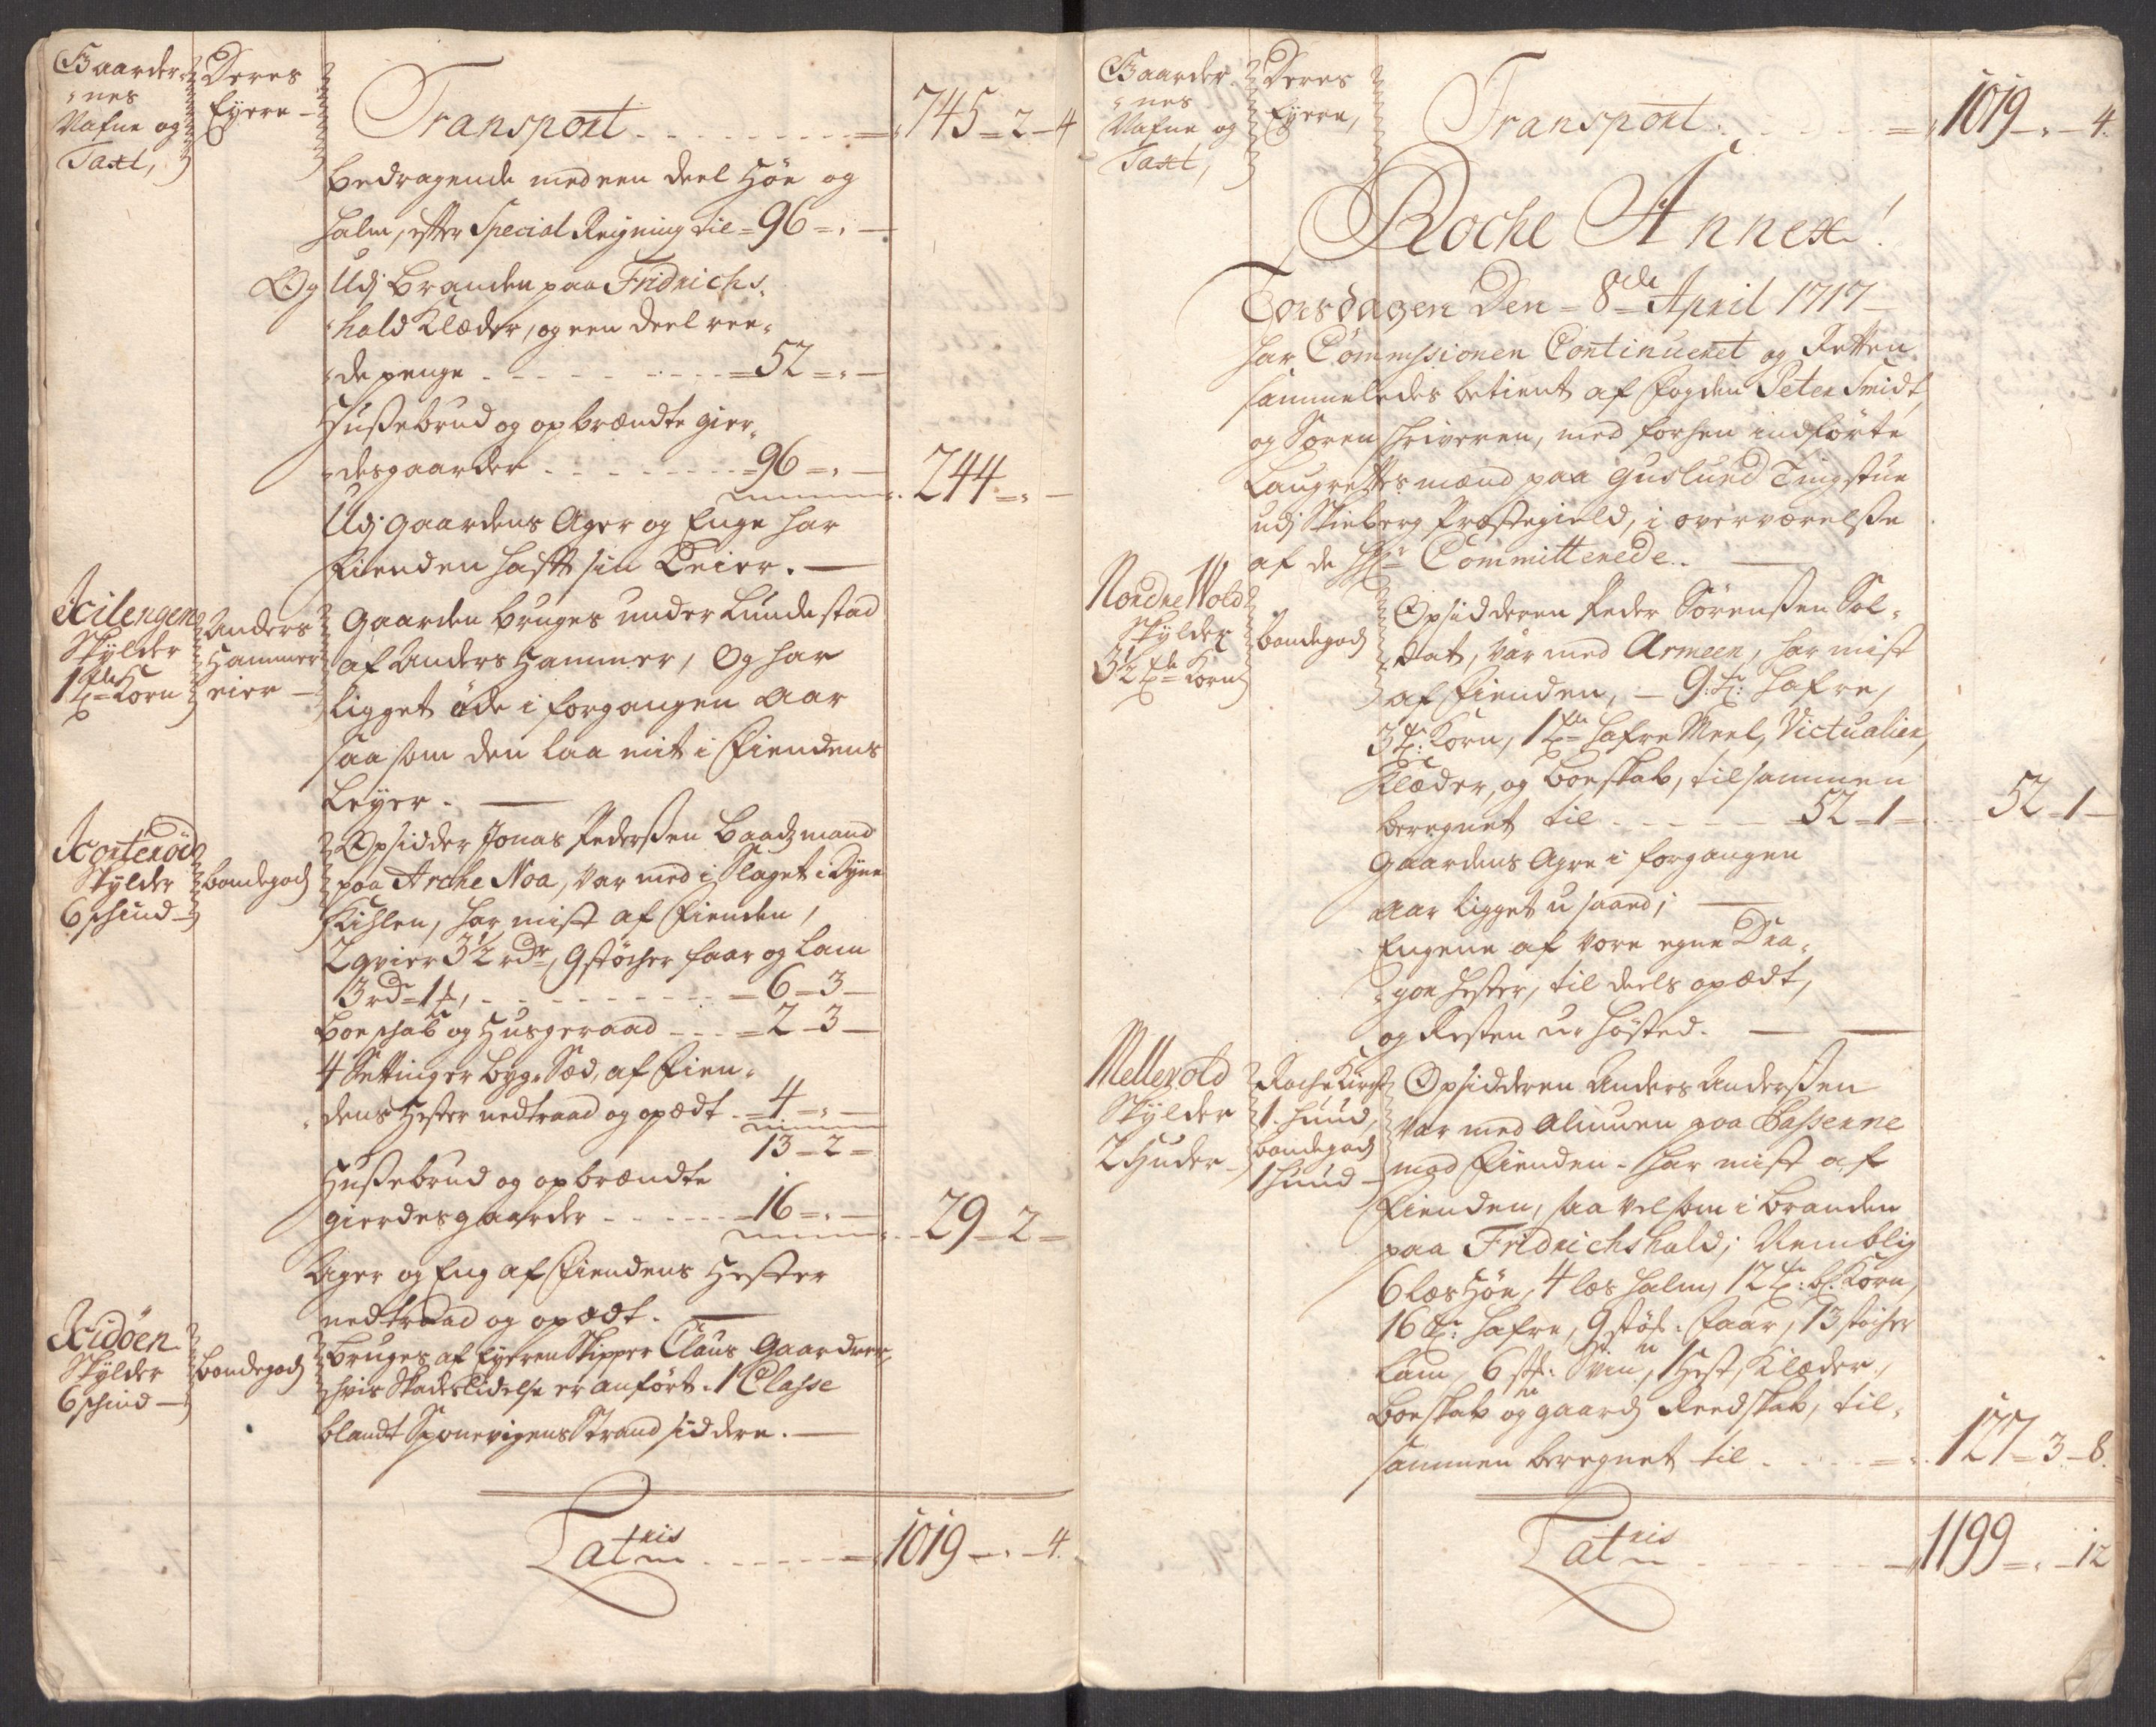 Gaarder-
nes
Nafne og
Taxt,
Deres
Eyere
Transport - - - 745 - 2 - 4
bedragende med een deel Höe og
halm, efter Special Regning til - 96 - " -
Og Udj Branden paa Fridrichs-
hald Klæder, og een deel ree-
de penge - - - 52 - " -
Hussebrud og opbrændte gier-
desgaarder - - - 96 - " - 244 - " -
Udj Gaardens Ager og Enge har
Fienden hafft sin Leier. -
Kilengen
Skylder
1 Tde Korn
Anders
Hammer
eier
Gaarden bruges under Lundestad
af Anders Hammer, Og har
ligget öde i forgangen Aar
saasom den laa mit i Fiendens
Leyer. -
Korteröd
Skylder
6 schind
bondegods
Opsidder Jonas Pedersen Baadzmand
paa Arche Noa, var med i Slaget i Dyne
Kihlen, har mist af Fienden,
2 qvier 3½ rdr, 9 støcher faar og Lam
3 rdr 1 , - - - 6 - 3 -
Boeschab og Husgeraad - - 2 - 3 -
4 Settinger Byg-Sæd, af Fien-
dens Hester nedtraad og opædt - 4 - " -
13 - 2 -
Hussebrud og opbrændte
gierdesgaarder - - - 16 - " - 29 - 2 -
Ager og Eng af Fiendens Hester
nedtraad og opædt. -
Kidöen
Skylder
6 schind
bondegods
Bruges af Eyeren Skipper Claus Gaardner,
hvis Skadeslidelse er anfört. 1 Classe
blandt Sponevigens Strandsiddere. -
Lateris - - - 1019 - " - 4.
Gaarder-
nes
Nafne og
Taxt,
Deres
Eyere,
Transport - - - 1019 - " - 4.
Rocke Annex!
Torsdagen Den 8de April 1717
har Commissionen Continueret og Retten
sammeledes betient af Fogden Peter Smidt,
og Sorenschriveren, med forhen indförte
Laugrettesmænd paa Guslund Tingstue
udj Skieberg Præstegield, i overværelse
af de Hr Committerede. -
Nordre Wold
Skylder
3½ Tde Korn
bondegods
Opsidderen Peder Sörensen Sol-
dat, var med Armeen, har mist
af Fienden, - 9 Tr: Hafre,
3 Tr: Korn, 1 Tde Hafre Meel, Victualier,
Klæder, og Boeskab, tilsammen
beregnet til - - - 52 - 1 - 52 - 1 -
Gaardens Agre i forgangen
Aar ligget usaaed; -
Engene af vore egne Dra-
gon Hester, til deels opædt,
og Resten u-höstet. -
Mellevold
Skylder
2 Huder
Rocke Kirche
1 huud,
bondegods
1 huud
Opsidderen Anders Andersen
var med Almuen paa Passerne
mod Fienden. har mist af
Fienden, saavelsom i Branden
paa Fridrichshald; Nemblig
6 læs Höe, 4 læs Halm, 12 Tr: bl: Korn,
16 Tr: Hafre, 9 støch: Faar, 13 støcher
Lam, 6 st: Sviin, 1 Hest, Klæder,
Boeskab og gaards Reedskab, til-
sammen beregnet til - - - 127 - 3 - 8.
Lateris - - - 1199 - " - 12